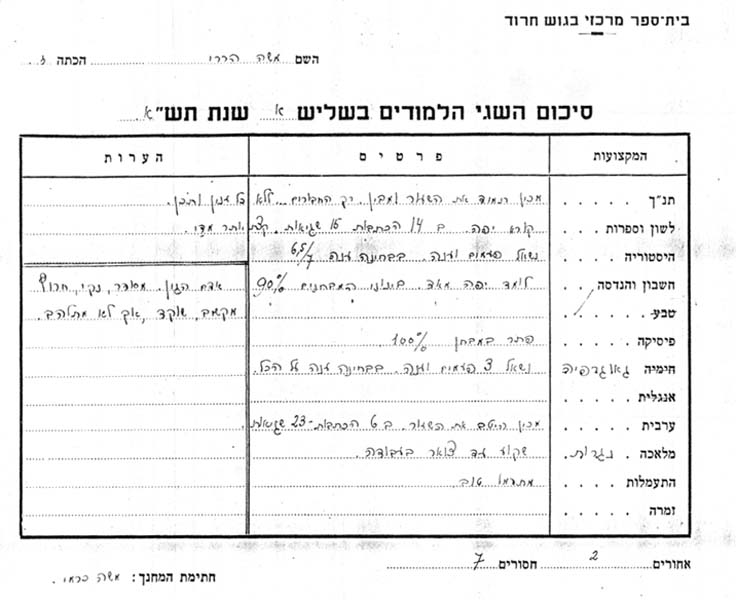 בית־ספר מרכזי בגוש חרוד
השם משה הררי הכתה ז.
סיכום השגי הלמודים בשליש א שנת תש"א.
המקצועות פרטים הערות
תנ"ך . . . . . מכין תמיד את השעור ומבין. רק החבורים... ללא כל ענין ותכן.
לשון וספרות . . . קורא יפה. ב 14 הכתבות 15 שגיאות. קצת יותר מדי.
היסטוריה . . . . נשאל פעמים וענה. בבחינה ענה 6.5/7
חשבון והנדסה . . לומד יפה מאד. בינוני המבחנים 90% אדם הגון. מסודר, נקי, חרוץ
טבע . . . . . מקשב, שוקד, אך לא מתלהב.
פיסיקה . . . . פתר במבחן 100%
חימיה גאוגרפיה נשאל 3 פעמים וענה. בבחינה ענה על הכל.
אנגלית . . . .
ערבית . . . . מכין היטב את השעור. ב 6 הכתבות - 23 שגיאות.
מלאכה . נגרות . שקוע עד צואר בעבודה.
התעמלות . . . מתעמל טוב.
זמרה . . . .
אחורים 2 חסורים 7
חתימת המחנך: משה כרמי.